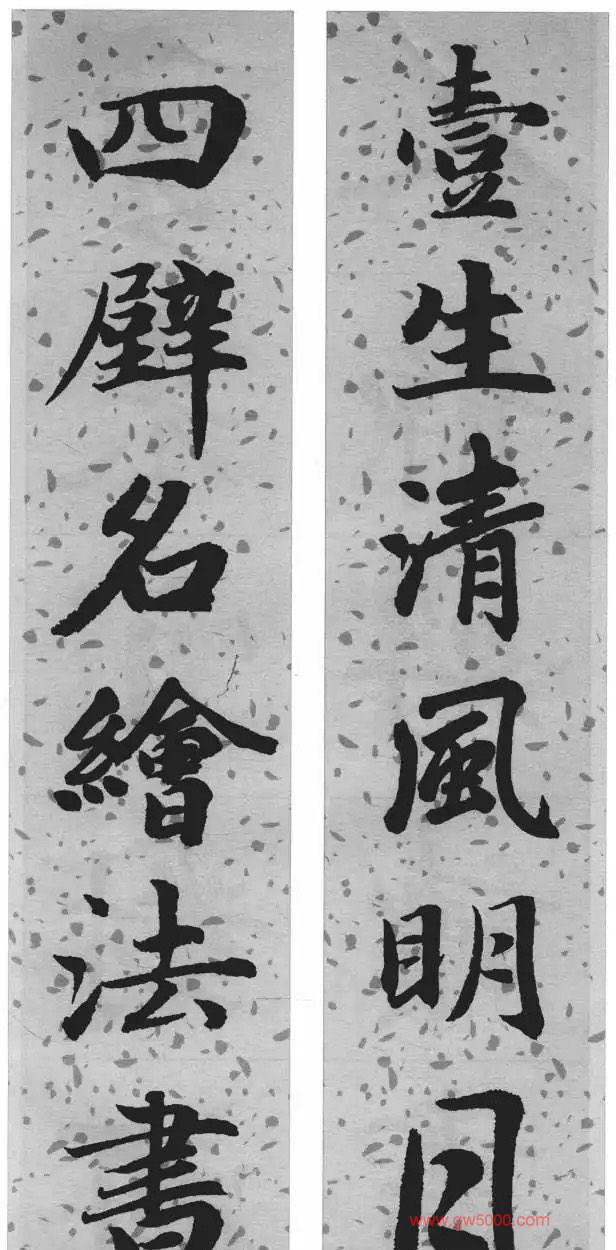 壹生清風明月
四壁名繪法書
www.gw5000.com